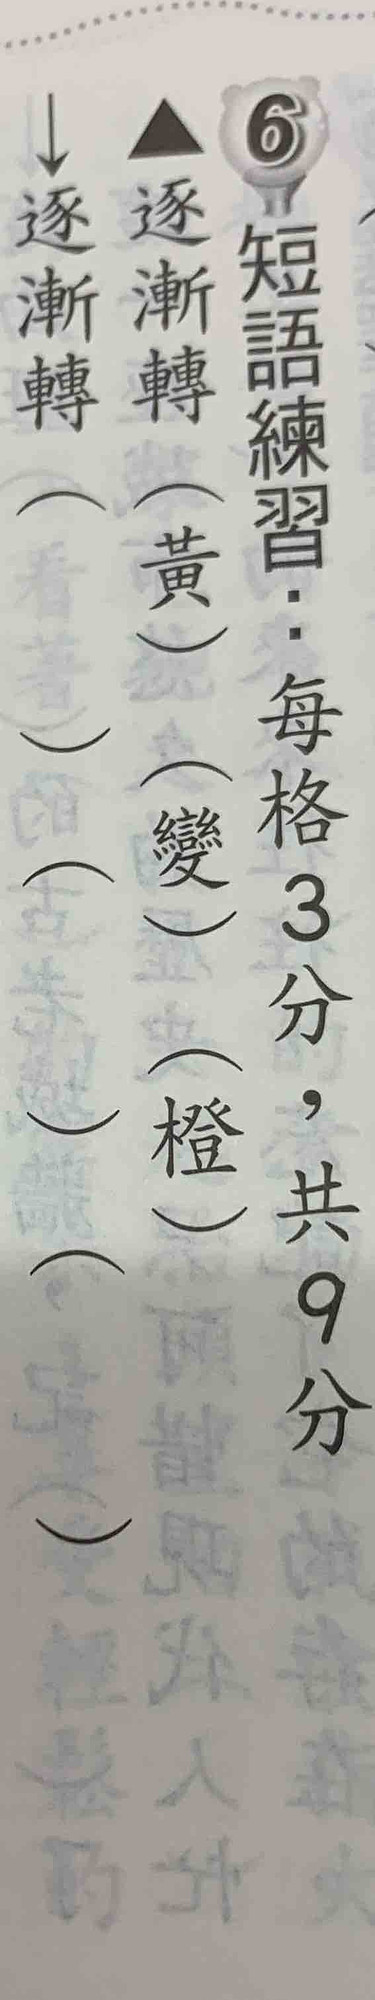 6 短語練習：每格3分，共9分
▲逐漸轉（黃）（變）（橙）
↓逐漸轉（ ）（ ）（ ）